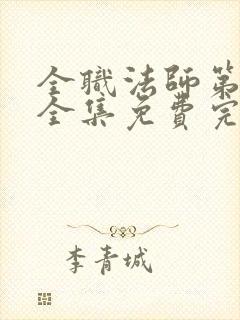 全職法師第
全集免費完
李青城